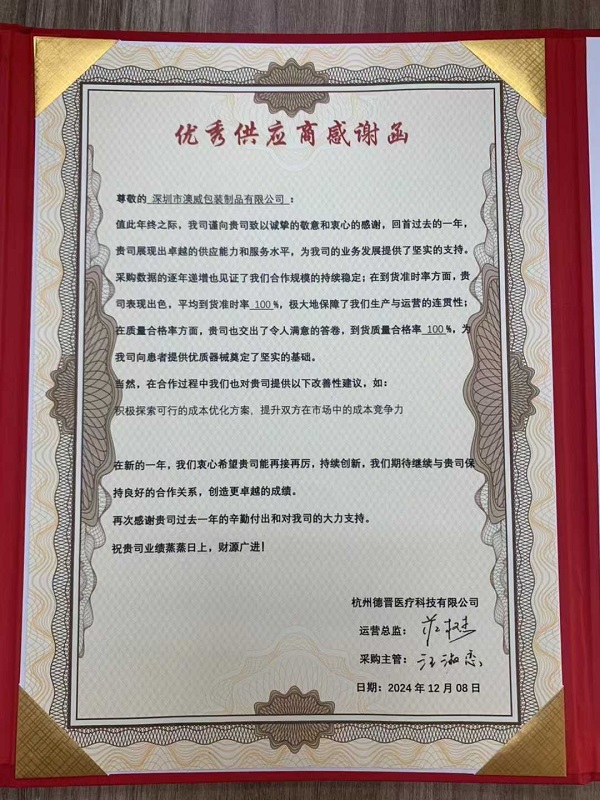 优秀供应商感谢函
尊敬的 深圳市澳威包装制品有限公司 :
值此年终之际，我司谨向贵司致以诚挚的敬意和衷心的感谢，回首过去的一年，
贵司展现出卓越的供应能力和服务水平，为我司的业务发展提供了坚实的支持。
采购数据的逐年递增也见证了我们合作规模的持续稳定；在到货准时率方面，贵
司表现出色，平均到货准时率 100 %，极大地保障了我们生产与运营的连贯性；
在质量合格率方面，贵司也交出了令人满意的答卷，到货质量合格率 100 %，为
我司向患者提供优质器械奠定了坚实的基础。
当然，在合作过程中我们也对贵司提供以下改善性建议，如：
积极探索可行的成本优化方案，提升双方在市场中的成本竞争力
在新的一年，我们衷心希望贵司能再接再厉，持续创新，我们期待继续与贵司保
持良好的合作关系，创造更卓越的成绩。
再次感谢贵司过去一年的辛勤付出和对我司的大力支持。
祝贵司业绩蒸蒸日上，财源广进！
杭州德晋医疗科技有限公司
运营总监：
采购主管：汪淑恋
日期：2024 年 12 月 08 日